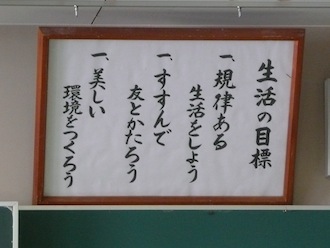 生活の目標
一、規律ある
生活をしよう
一、すすんで
友とかたろう
一、美しい
環境をつくろう